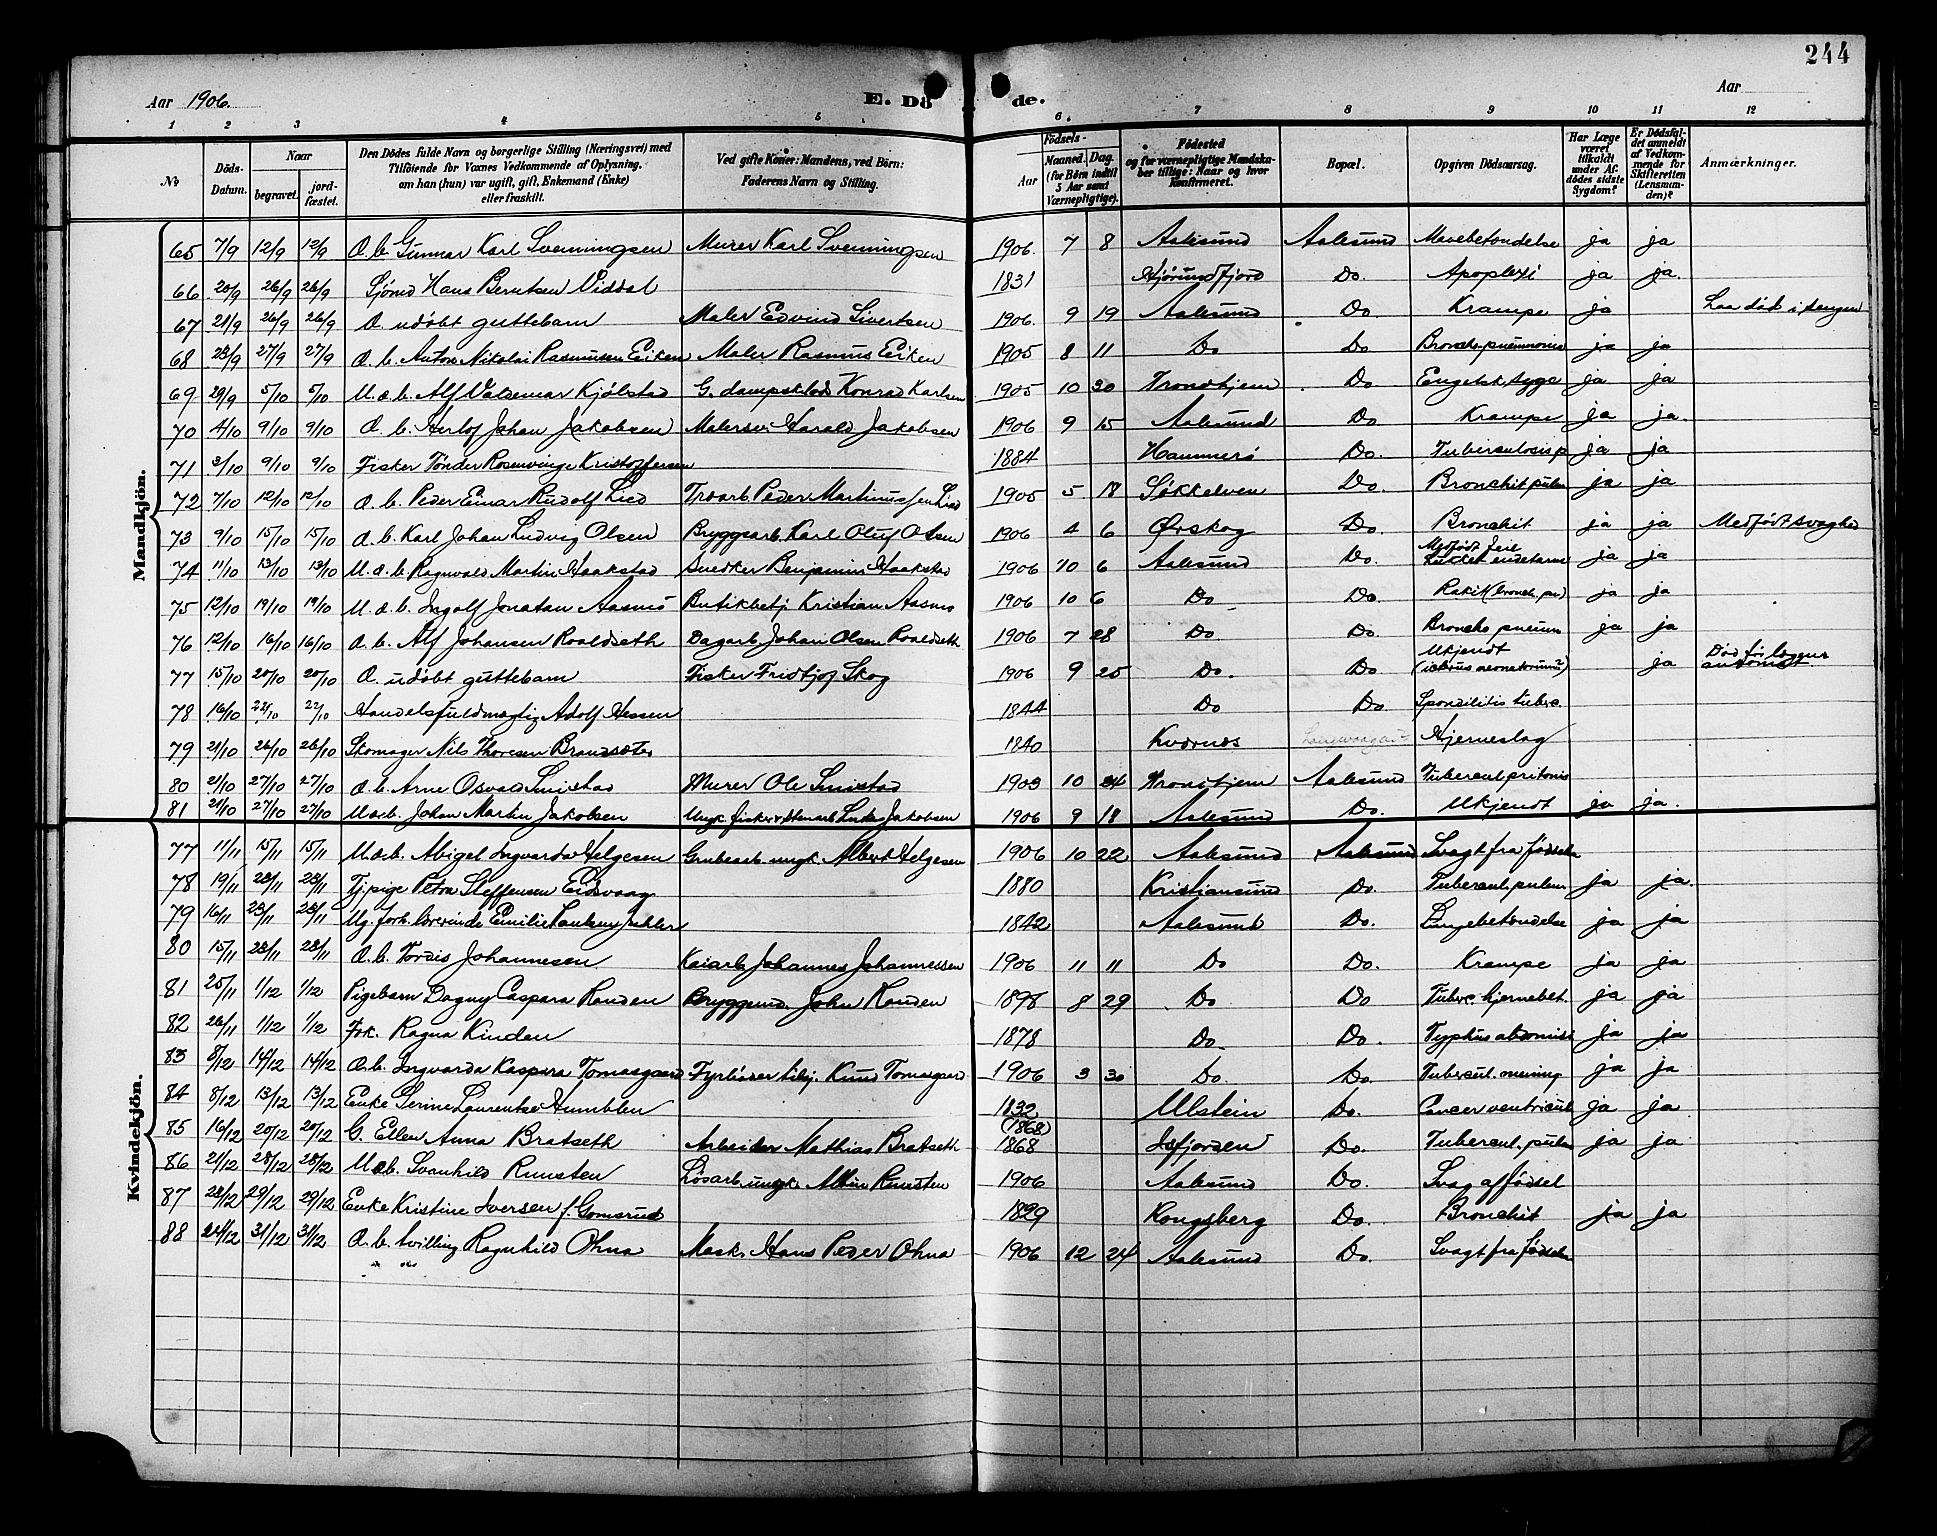 244
Aar 1906. E. Dö de. Aar
1 2 3 4 5 6 7 8 9 10 11 12
№ Döds-Datum. Naar begravet. jordfæstet. Den Dödes fulde Navn og borgerlige Stilling (Næringsvei) med Tilföiende for Voxnes Vedkommende af Oplysning. om han (hun) var ugift, gift, Enkemand (Enke) eller fraskilt. Ved gifte Koner: Mandens, ved Börn: Faderens Navn og Stilling. Födsels- Aar Maaned. Dag. (for Börn indtil 5 Aar samt Værnepligtige). Födested og for værnepligtige Mandskaber tillige: Naar og hvor Konfirmeret. Bopæl. Opgiven Dödsaarsag. Har Læge været tilkaldt under Afdödes sidste Sygdom? Er Dödsfaldet anmeldt af Vedkommende for Skifteretten (Lensmanden)? Anmærkninger.
Mandkjön.
65 7/9 12/9 12/9 A. b. Gunnar Karl Svenningsen Murer Karl Svenningsen 1906. 7 8 Aalesund Aalesund Mavebetændelse ja ja
66 20/9 26/9 26/9 Sjömd Hans Berntsen Viddal 1831 Hjørundfjord Do. Apoplexi ja ja.
67 21/9 26/9 26/9 A. udöbt guttebarn Maler Edvind Sivertsen 1906. 9 19 Aalesund Do. Krampe ja Laa död i sengen
68 23/9 27/9 27/9 A. b. Anton Nikolai Rasmussen Eiken Maler Rasmus Eiken 1905 8 11 Do Do Broncho pneumonie ja ja
69 29/9 5/10 5/10 U. æ. b. Alf Valdemar Kjölstad G. Konrad Karlsen 1905 10 30 Trondhjem Do Engelsk syge ja ja
70 4/10 9/10 9/10 A. b. Herlof Johan Jakobsen Malersv. Harald Jakobsen 1906 9 15 Aalesund Do Krampe ja ja.
71 3/10 9/10 9/10 Fisker Tönder Rosenvinge Kristoffersen 1884 Hammerö Do. Tuberculosis p ja ja
72 7/10 12/10 12/10 A. b. Peder Einar Rudolf Lied Peder Martinussen Lied 1905 5 18 Søkkelven Do. Bronchit pulm ja ja
73 9/10 15/10 15/10 A. b. Karl Johan Ludvig Olsen Bryggearb. Karl Oluf Olsen 1906 4 6 Ørskog Do. Bronchit ja ja Medfödt svaghed
74 11/10 13/10 13/10 U. æ. b. Ragnvald Martin Haakstad Snedker Benjamin Haakstad 1906 10 6 Aalesund Do. Medfödt feil Lukket endetarm ja ja
75 12/10 19/10 19/10 U. æ. b. Ingolf Jonatan Aasmo Butikbetj Kristian Aasmo 1906 10 6 Do Do. Rakit (bronch. pn) ja ja
76 12/10 16/10 16/10 A. b. Alf Johansen Roaldseth Dagarb. Johan Olsen Roaldseth 1906 7 28 Do. Do. Broncho pneum ja ja
77 15/10 20/10 20/10 A. udöbt guttebarn Fisker Fridtjof Skog 1906 9 25 Do. Do Ukjendt (icterus neonatorum) ja Död för lægens ankomst
78 16/10 22/10 22/10 Handelsfuldmægtig Adolf Hessen 1844 Do Do. Spondilitis tuberc.
79 21/10 26/10 26/10 Skomager Nils Thoresen Brandsæter 1840 Kværnes Hjerneslag
80 21/10 27/10 27/10 A. b. Arne Osvald Smistad Murer Ole Smistad 1903 10 24 Trondhjem Aalesund Tubercul pritonis
81 21/10 27/10 27/10 U. æ. b. Johan Martin Jakobsen Ungk. fisker Jakobsen 1906 9 18 Aalesund Do. Ukjendt ja ja.
Kvindekjön.
77 11/11 15/11 15/11 U. æ. b. Abigel Ingvarda Helgesen Grubearb. ungk. Albert Helgesen 1906 10 22 Aalesund Aalesund Svagt fra fødselen
78 19/11 23/11 23/11 Tj. pige Petra Steffensen Eidsvaag 1880 Kristiansund Do. Tubercul. pulm ja ja.
79 16/11 23/11 23/11 Ug. forh. lærerinde Emilie 1842 Aalesund Do. Lungebetændelse ja ja
80 15/11 23/11 23/11 A. b. Tordis Johannesen Kaiarb Johannes Johannessen 1906 11 11 Do Do. Krampe ja ja
81 25/11 1/12 1/12 Pigebarn Dagny Caspara Randen Bryggmd. John Randen 1898 8 29 Do Do Tuberc hjernebet. ja ja
82 26/11 1/12 1/12 Frk. Ragna Kinden 1878 Do. Do. Typhus abdomin ja ja
83 8/12 14/12 14/12 A. b. Ingvarda Kaspara Tomasgaard Fyrböder Knud Tomasgaard 1906 3 30 Do. Do. Tubercul. mening ja ja
84 8/12 13/12 13/12 Enke Serine Laurentse Humblen 1832 Ulstein Do. Cancer ventricul ja ja.
85 16/12 20/12 20/12 G. Ellen Anna Bratseth Arbeider Mathias Bratseth (1868) 1868 Isfjorden Do. Tubercul. pulm ja ja
86 21/12 28/12 28/12 U. æ. b. Svanhild Runsten Lösarb. ungk. Albin Runsten 1906 Aalesund Do. Svag af födsel
87 23/12 29/12 29/12 Enke Kristine Iversen f. Gomsrud 1829 Kongsberg Do. Bronchit ja ja
88 24/12 31/12 31/12 A. b. tvilling Ragnhild Ohna Mask. Hans Peder Ohna 1906 12 24 Aalesund Do. Svagt fra fødselen